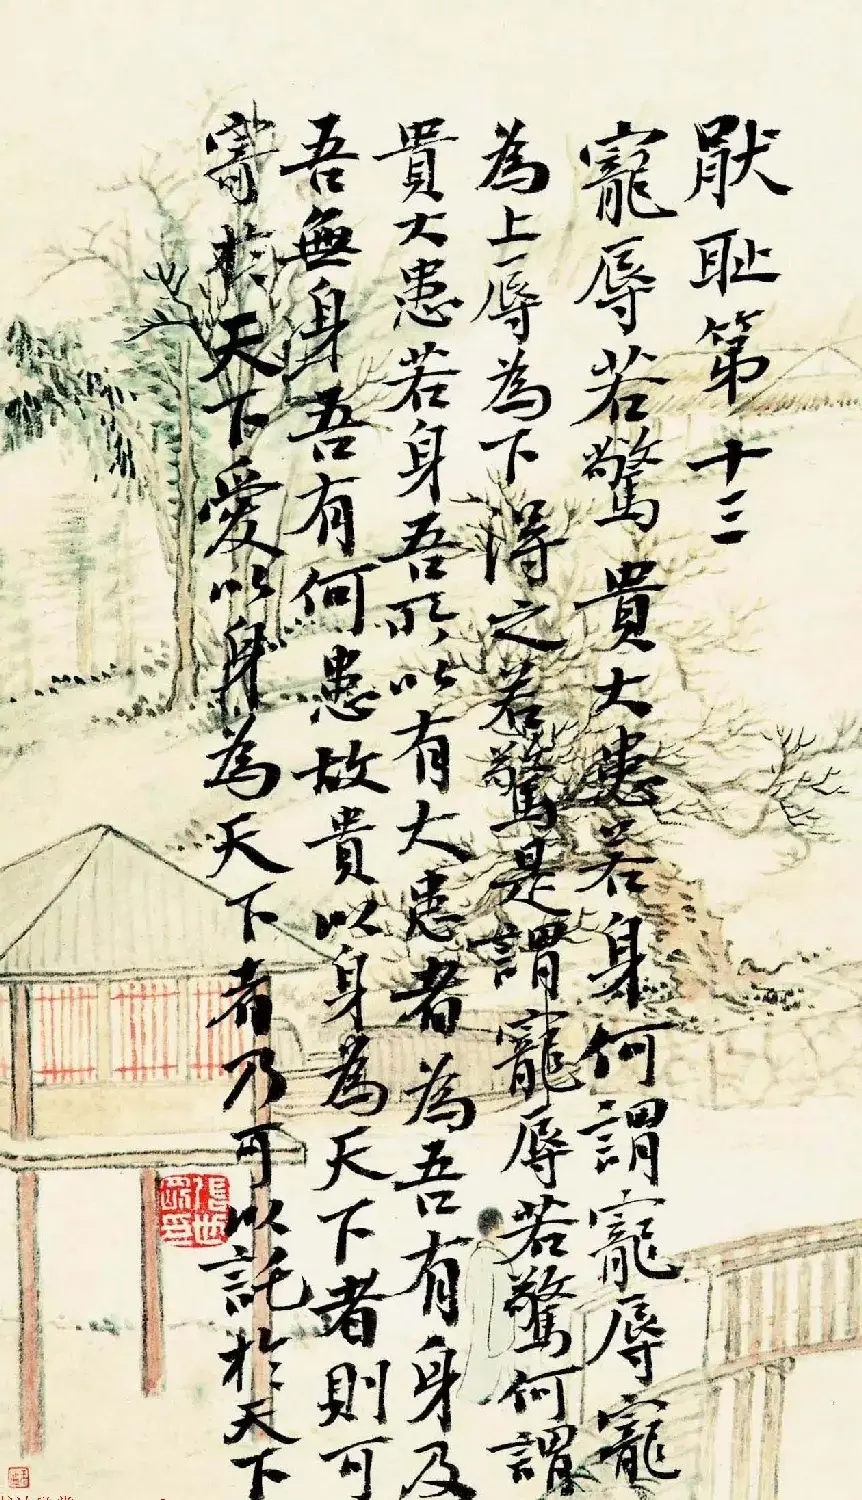 猒耻第十三
寵辱若驚貴大患若身何謂寵辱寵
為上辱為下得之若驚是謂寵辱若驚何謂
貴大患若身吾所以有大患者為吾有身及
吾無身吾有何患故貴以身為天下者則可
寄於天下愛以身為天下者乃可以託於天下